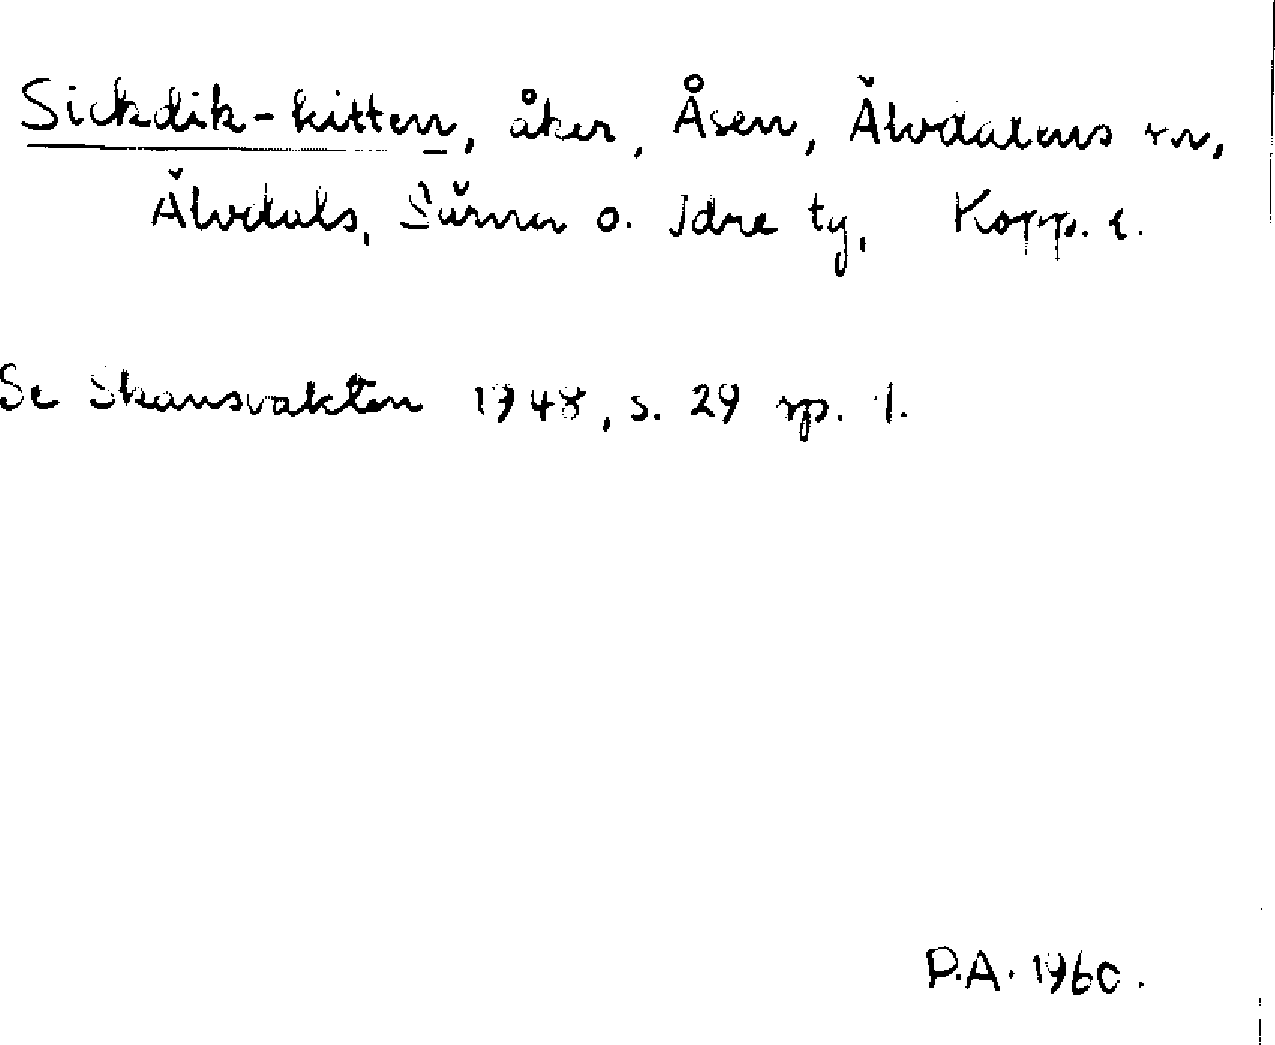 Sickdik-kitten, åker, Åsen, Älvdalens sn,
Älvdals, Särna o. Idre tg, Kopp. l.
Se Skansvakten 1948, s. 29 sp. 1.
P.A. 1960.